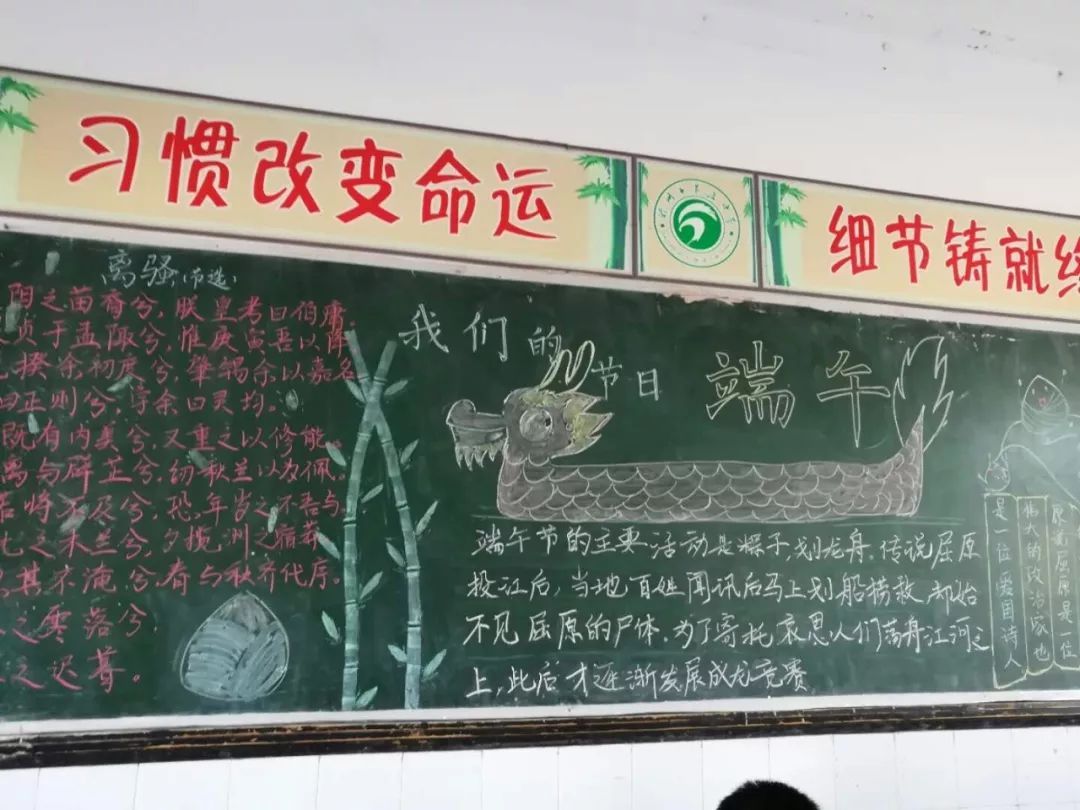 习惯改变命运
细节铸就
离骚(节选)
阳之苗裔兮,朕皇考曰伯庸
贞于孟陬兮,惟庚寅吾以降
揆余初度兮,肇锡余以嘉名
正则兮,字余曰灵均。
既有内美兮,又重之以修能。
离与辟芷兮,纫秋兰以为佩。
将不及兮,恐年岁之不吾与
之木兰兮,夕揽洲之宿莽
其不淹兮,春与秋齐代序。
之零落兮
之迟暮。
我们的
节日
端午
端午节的主要活动是粽子,划龙舟,传说屈原
投江后,当地百姓闻讯后马上划船捞救,却始
不见屈原的尸体,为了寄托哀思人们荡舟江河之
上,此后才逐渐发展成龙竞赛
屈原是一位
伟大的政治家也
是一位爱国诗人